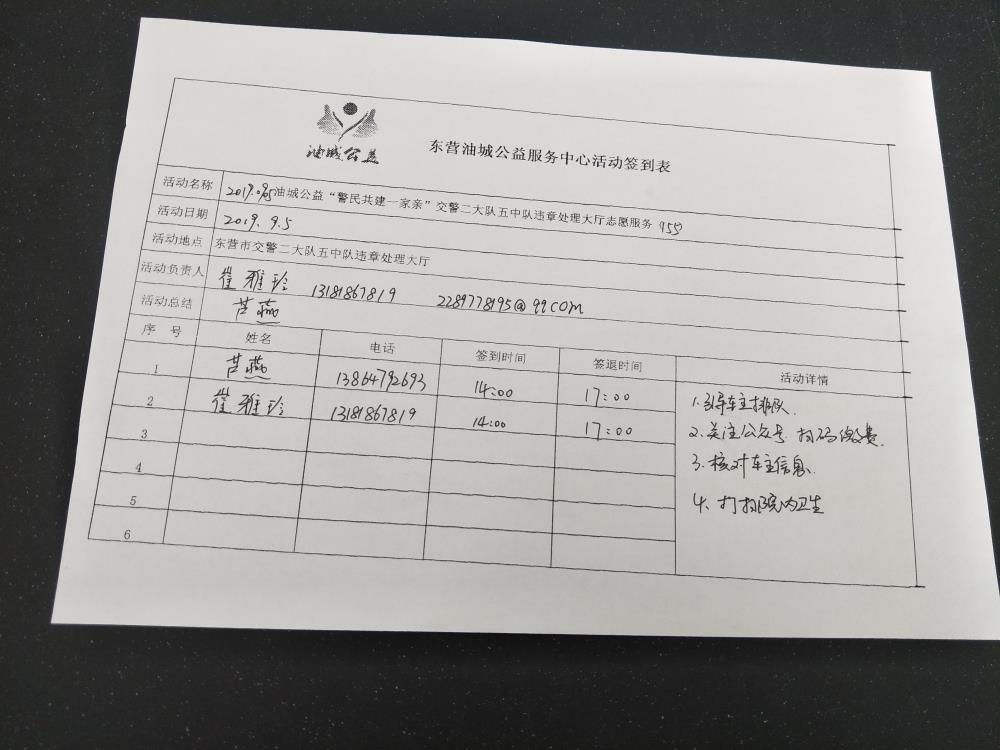 油城公益
东营油城公益服务中心活动签到表
活动名称 2019.0905油城公益“警民共建一家亲”交警二大队五中队违章处理大厅志愿服务 955
活动日期 2019.9.5
活动地点 东营市交警二大队五中队违章处理大厅
活动负责人 崔雅玲 13181867819 2289778195@qqcom
活动总结 芦燕
序 号 姓名 电话 签到时间 签退时间 活动详情
1 芦燕 13864792693 14:00 17:00
2 崔雅玲 13181867819 14:00 17:00
3
4
5
6
1.引导车主排队.
2.关注公众号 扫码缴费.
3.核对车主信息.
4.打扫院内卫生